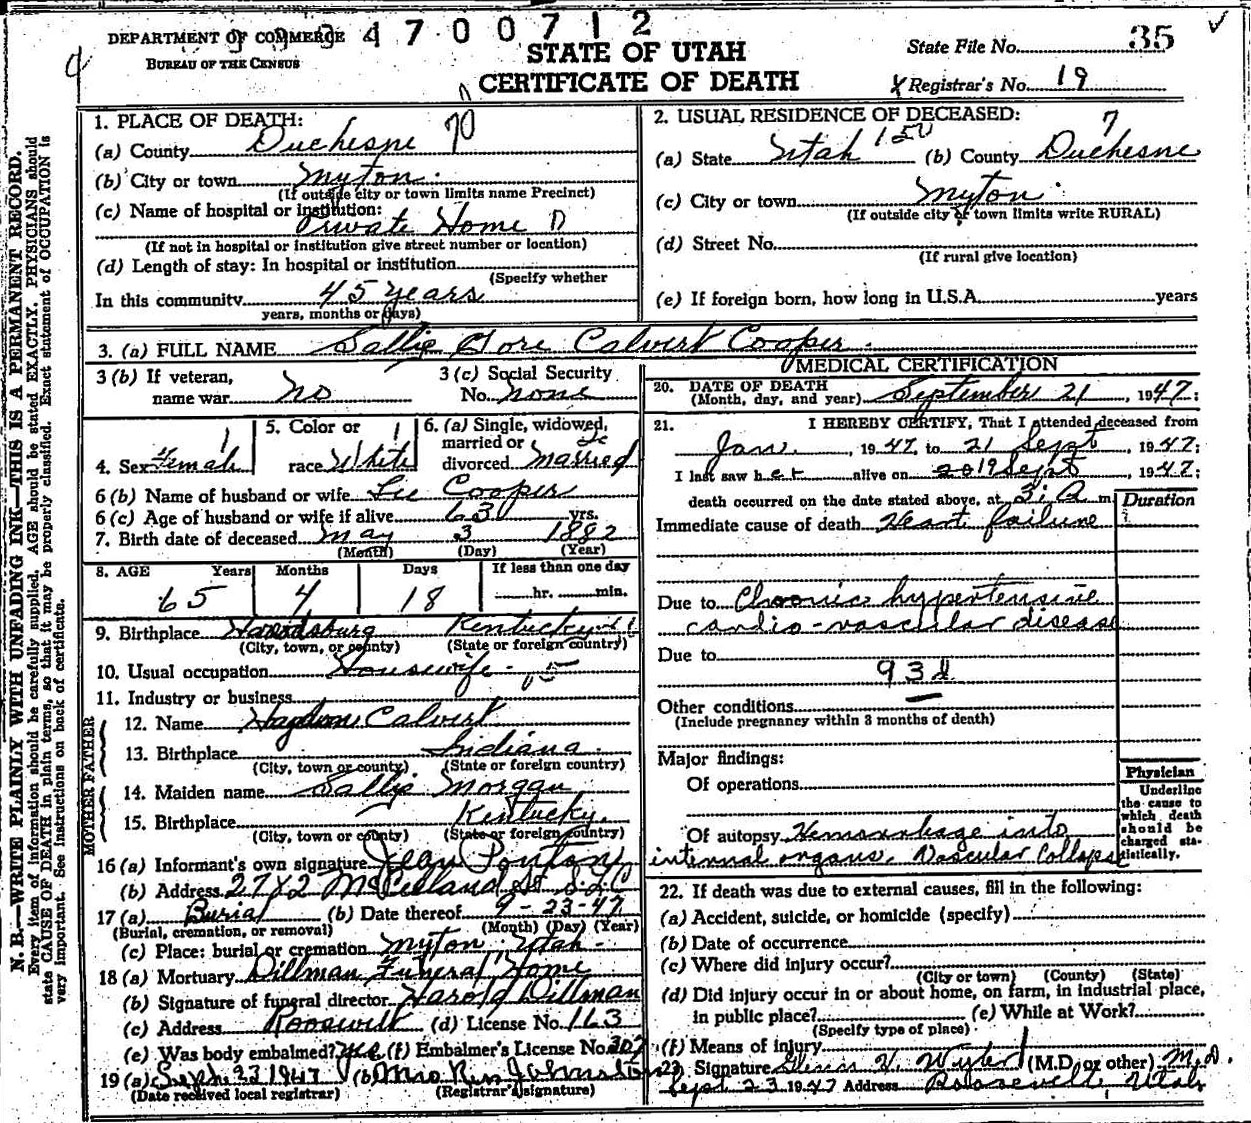 4700712
DEPARTMENT OF COMMERCE
BUREAU OF THE CENSUS
STATE OF UTAH
CERTIFICATE OF DEATH
State File No. 35
Registrar's No. 19
N. B.—WRITE PLAINLY WITH UNFADING INK—THIS IS A PERMANENT RECORD.
Every item of information should be carefully supplied. AGE should be stated EXACTLY. PHYSICIANS should
state CAUSE OF DEATH in plain terms, so that it may be properly classified. Exact statement of OCCUPATION is
very important. See instructions on back of certificate.
1. PLACE OF DEATH:
(a) County Duchesne
(b) City or town Myton
(If outside city or town limits name Precinct)
(c) Name of hospital or institution:
Private Home
(If not in hospital or institution give street number or location)
(d) Length of stay: In hospital or institution
(Specify whether
In this community 45 years
years, months or days)
2. USUAL RESIDENCE OF DECEASED: 7
(a) State Utah 150 (b) County Duchesne
(c) City or town Myton
(If outside city of town limits write RURAL)
(d) Street No.
(If rural give location)
(e) If foreign born, how long in U.S.A. years
3. (a) FULL NAME Sallie Gore Calvert Cooper
3 (b) If veteran, name war no
3 (c) Social Security No. none
4. Sex Female
5. Color or race White
6. (a) Single, widowed, married or divorced Married
6 (b) Name of husband or wife Lee Cooper
6 (c) Age of husband or wife if alive 63 yrs.
7. Birth date of deceased May 3 1882
(Month) (Day) (Year)
8. AGE Years Months Days If less than one day
65 4 18 hr. min.
9. Birthplace Harrodsburg Kentucky
(City, town, or county) (State or foreign country)
10. Usual occupation Housewife
11. Industry or business
FATHER
12. Name Calvert
13. Birthplace Indiana
(City, town or county) (State or foreign country)
MOTHER
14. Maiden name Sallie Morgan
15. Birthplace Kentucky
(City, town or county) (State or foreign country)
16 (a) Informant's own signature Jean
(b) Address St S.L.C
17 (a) Burial (b) Date thereof 9-23-47
(Burial, cremation, or removal) (Month) (Day) (Year)
(c) Place: burial or cremation Myton Utah
18 (a) Mortuary Dillman Funeral Home
(b) Signature of funeral director Harold Dillman
(c) Address Roosevelt (d) License No. 163
(e) Was body embalmed? yes (f) Embalmer's License No. 307
19 (a) Sept. 23 1947 (b) Mrs Johnston
(Date received local registrar) (Registrar's signature)
MEDICAL CERTIFICATION
20. DATE OF DEATH
(Month, day, and year) September 21, 1947;
21. I HEREBY CERTIFY, That I attended deceased from
Jan., 1947, to 21 Sept, 1947;
I last saw her alive on 19 Sept, 1947;
death occurred on the date stated above, at 3: A m
Duration
Immediate cause of death Heart failure
Due to Chronic hypertensive
cardio-vascular disease
Due to
93d
Other conditions
(Include pregnancy within 3 months of death)
Major findings:
Of operations
Of autopsy Hemorrhage into
internal organs. Vascular Collapse
Physician
Underline
the cause to
which death
should be
charged sta-
tistically.
22. If death was due to external causes, fill in the following:
(a) Accident, suicide, or homicide (specify)
(b) Date of occurrence
(c) Where did injury occur?
(City or town) (County) (State)
(d) Did injury occur in or about home, on farm, in industrial place,
in public place? (e) While at Work?
(Specify type of place)
(f) Means of injury
23. Signature (M.D. or other) M.D.
Sept 23 1947 Address Roosevelt, Utah